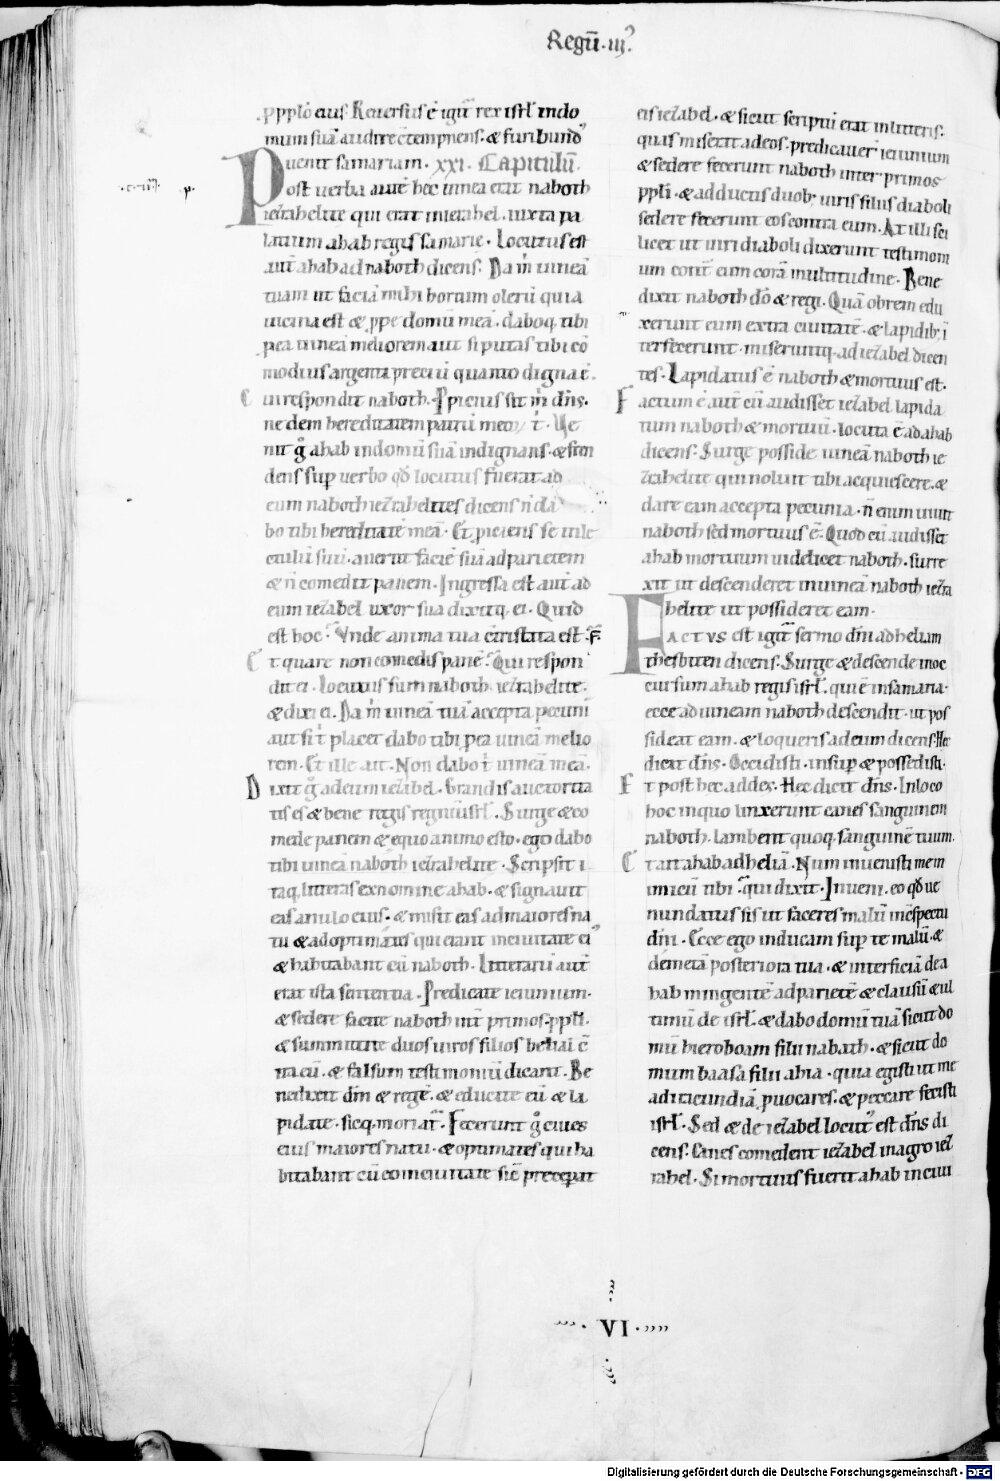 Regū · iii
.ppłō eius. Reuersus ē igit̄ rex isrł indo
mum suā audire cōtempnens. & furibund᾿
uenit samariam. XXI. Capitulū.
Post uerba autē hęc uinea erat naboth
iezrahelite qui erat in iezrahel. iuxta pa
latium ahab regis samarie. Locutus est
aut̄ ahab ad naboth dicens. Da m̄ uineā
tuam ut faciā mihi hortum olerū quia
uicina est & ꝓpe domū meā. daboq; tibi
ꝓ ea uineā meliorem aut si putas tibi cō
modius argenti preciū quanto digna ē.
Cui respondit naboth. Ꝓpicius sit m̄ dn̄s.
ne dem hereditatem patrū meoꝝ t̄. Ue
nit g̊ ahab in domū suā indignans. & fren
dens suꝑ uerbo qd̄ locutus fuerat ad
eum naboth iezrahelites dicens ñ da
bo tibi hereditatē meā. Et ꝓiciens se in le
ctulū suū. auertit faciē suā ad parietem
& ñ comedit panem. Ingressa est aut̄ ad
eum iezabel uxor sua dixitq; ei. Quid
est hoc. Vnde anima tua cōtristata est.
Et quare non comedis panē. Qui respon
dit ei. Locutus sum naboth iezrahelite.
& dixi ei. Da m̄ uineā tuā accepta pecuni
aut si t̄ placet dabo tibi ꝓ ea uineā melio
rem. Et ille ait. Non dabo t̄ uineā meā.
Dixit g̊ ad eum iezabel. Grandis auctorita
tis es & bene regis regnū isrł. Surge & co
mede panem & equo animo esto. ego dabo
tibi uineā naboth iezrahelite. Scripsit i
taq; litteras ex nomine ahab. & signauit
eas anulo eius. & misit eas ad maiores na
tu & ad optimates qui erant in ciuitate ei᾿
& habitabant cū naboth. Litterarū aut̄
erat ista sententia. Predicate ieiunium.
& sedere facite naboth int̄ primos ppłi.
& summittite duos uiros filios belial cō
tra eū. & falsum testimoniū dicant. Be
nedixit dm̄ & regē. & educite eū & la
pidate. sicq; moriat̄. Fecerunt g̊ ciues
eius maiores natu. & optimates qui ha
bitabant cū eo in ciuitate sic̄ preceperat
eis iezabel. & sicut scriptū erat in litteris.
quas miserat ad eos. predicauer̄ ieiunium
& sedere fecerunt naboth inter primos
ppłi. & adductis duob; uiris filiis diaboli
sedere fecerunt eos contra eum. At illi sci
licet ut uiri diaboli dixerunt testimoni
um cont̄ eum corā multitudine. Bene
dixit naboth dō & regi. Quā obrem edu
xerunt eum extra ciuitatē. & lapidib; ī
terfecerunt. miseruntq; ad iezabel dicen
tes. Lapidatus ē naboth & mortuus est.
Factum ē aut̄ cū audisset iezabel lapida
tum naboth & mortuū. locuta ē ad ahab
dicens. Surge posside uineā naboth ie
zrahelite qui noluit tibi acquiescere. &
dare eam accepta pecunia. ñ enim uiuit
naboth sed mortuus ē. Quod cū audisset
ahab mortuum uidelicet naboth. surre
xit ut descenderet in uineā naboth iezra
helite ut possideret eam.
FACTVS est igit̄ sermo dn̄i ad heliam
thesbiten dicens. Surge & descende in oc
cursum ahab regis isrł. qui ē in samaria.
ecce ad uineam naboth descendit. ut pos
sideat eam. & loqueris ad eum dicens. Hec
dicit dn̄s. Occidisti. insuꝑ & possedisti.
Et post hec addes. Hec dicit dn̄s. In loco
hoc in quo linxerunt canes sanguinem
naboth. lambent quoq; sanguinē tuum.
Et ait ahab ad heliā. Num inuenisti me in
imicū tibi. qui dixit. Inueni. eo qd̄ ue
nundatus sis ut faceres malū in cōspectu
dn̄i. Ecce ego inducam suꝑ te malū. &
demetā posteriora tua. & interficiā de a
hab mingentē ad parietē & clausū & ul
timū de isrł. & dabo domū tuā sicut do
mū hieroboam filii nabath. & sicut do
mum baasa filii ahia. quia egisti ut me
ad iracundiā ꝓuocares. & peccare fecisti
isrł. Sed & de iezabel locut᾿ est dn̄s di
cens. Canes comedent iezabel in agro iez
rahel. Si mortuus fuerit ahab in ciui
VI
Digitalisierung gefördert durch die Deutsche Forschungsgemeinschaft - DFG